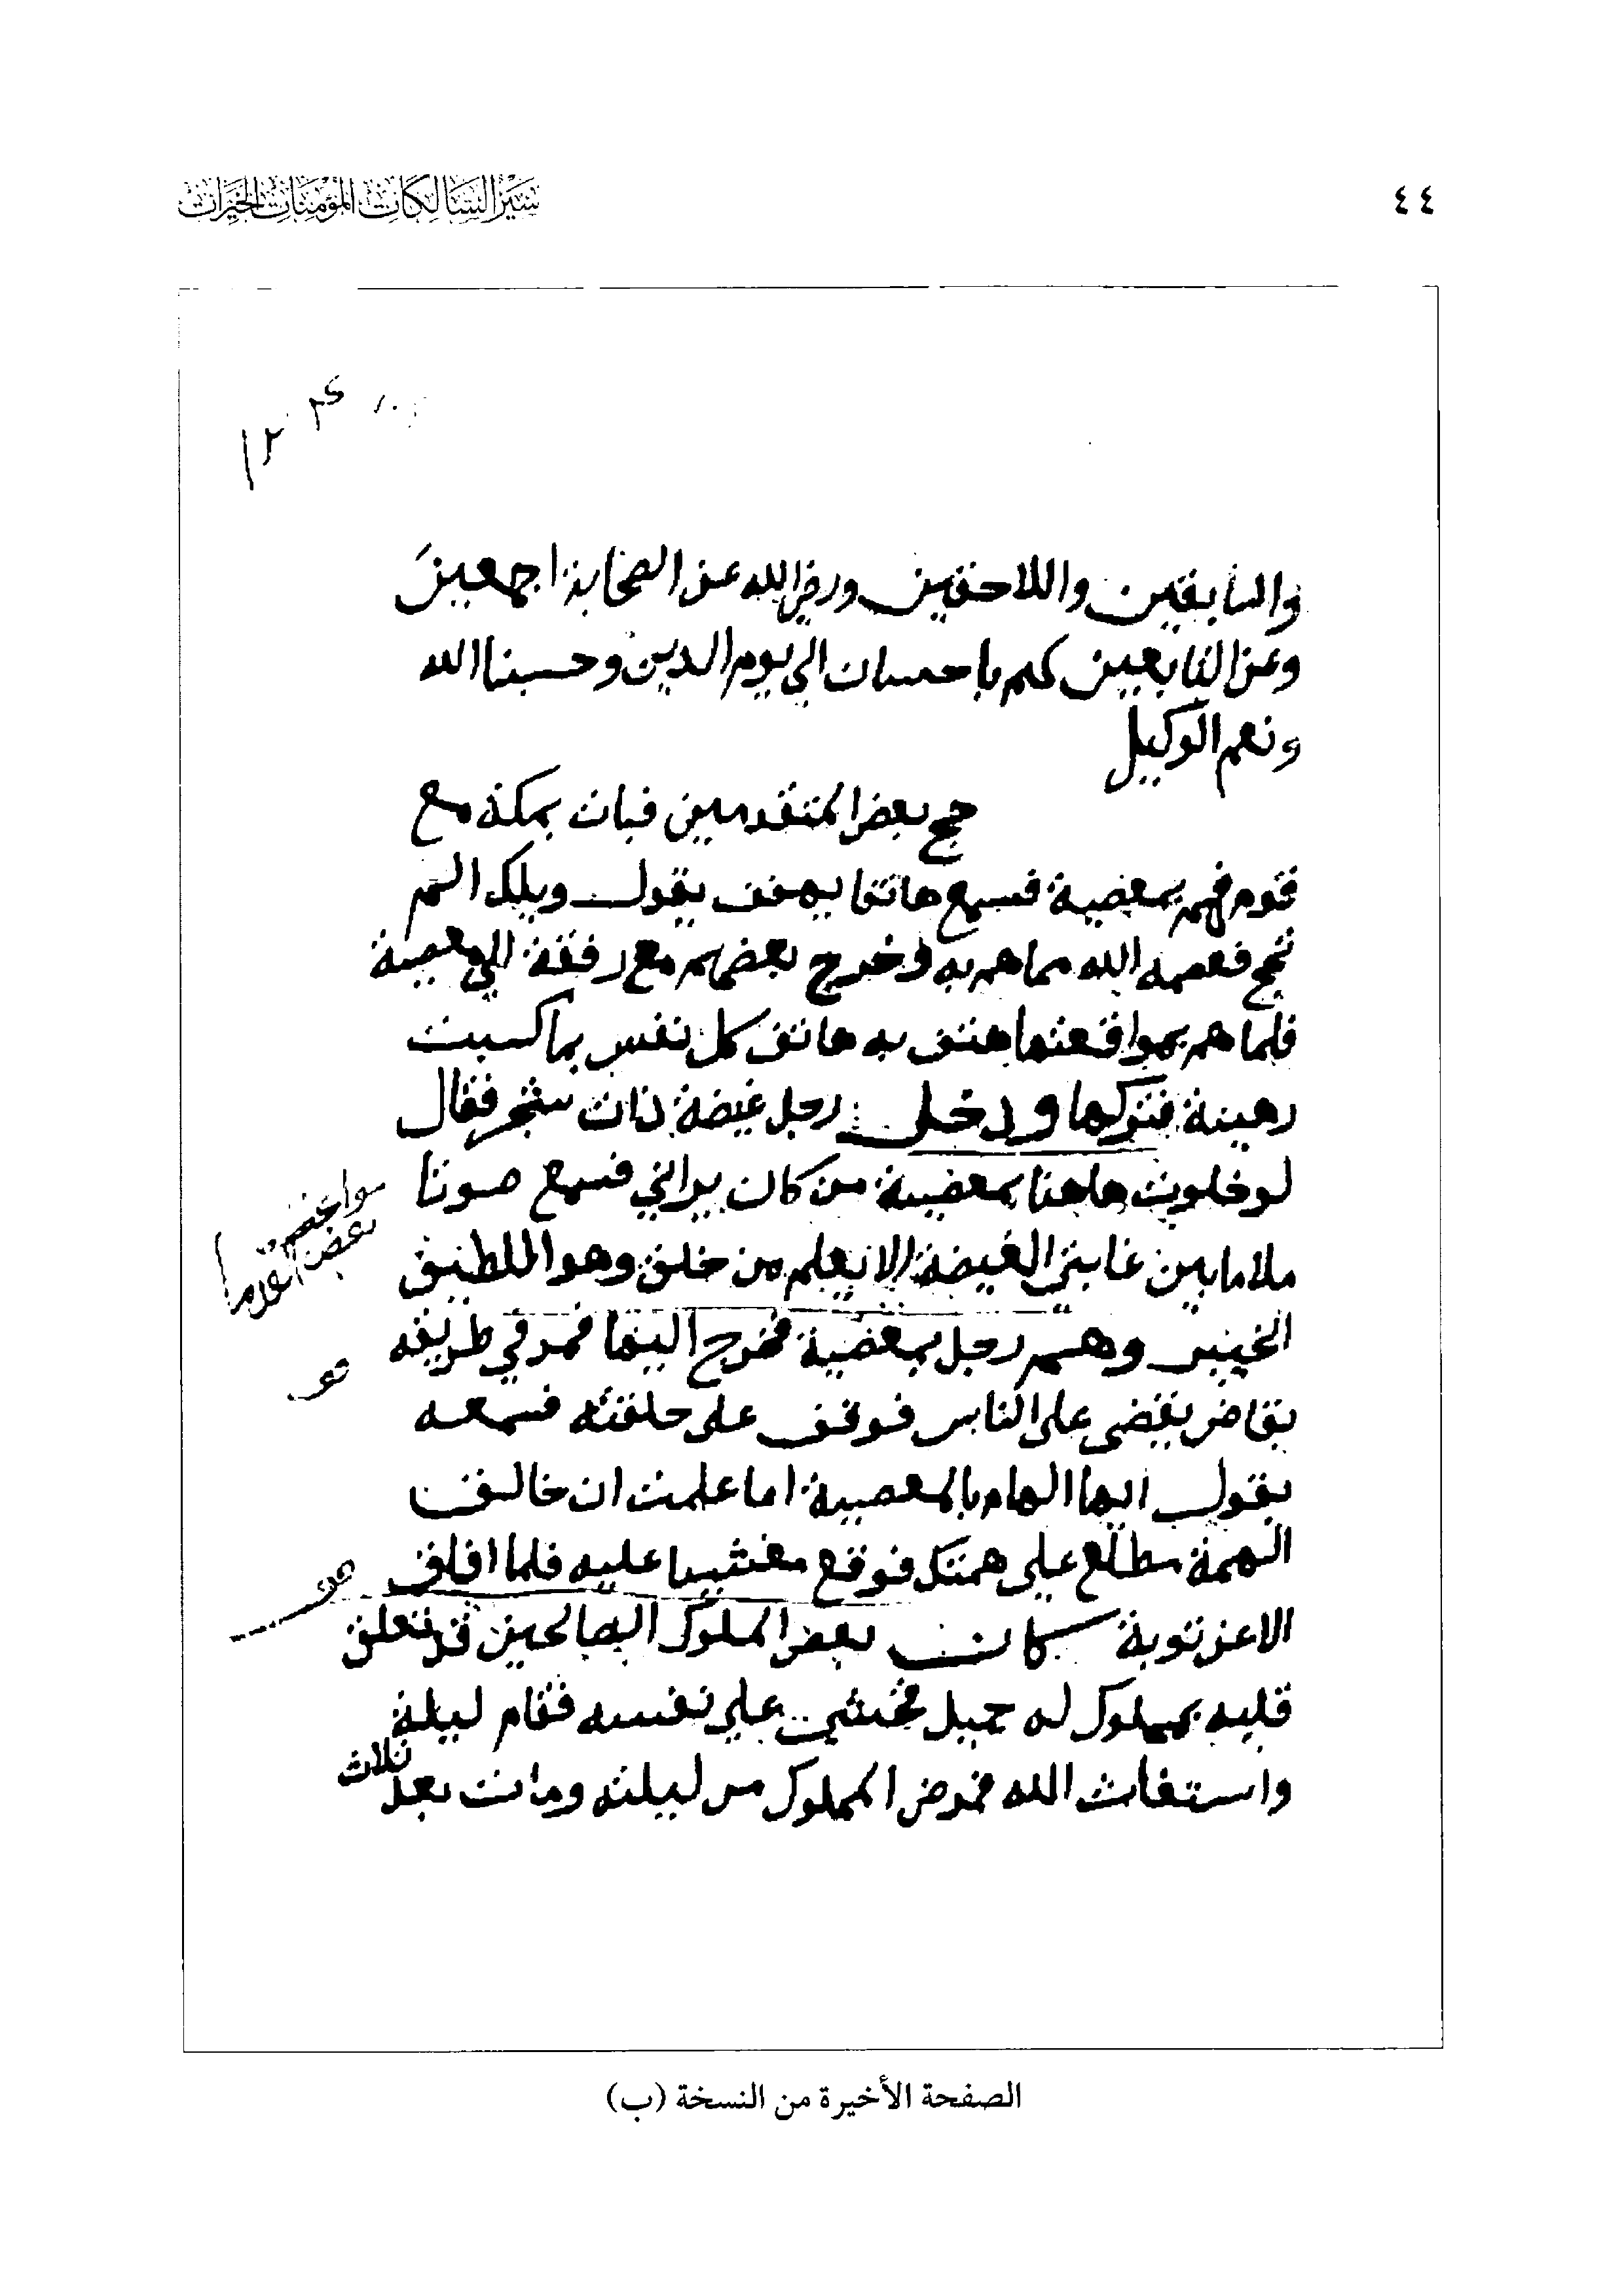 ٤٤
سير السالكات المؤمنات الخيرات
والسابقين واللاحقين ورضي الله عن الصحابة اجمعين
وعن التابعين لهم باحسان الى يوم الدين وحسبنا الله
ونعم الوكيل
حج بعض المتقدمين فبات بمكة مع
قوم فهم بمعصية فسمع هاتفا يهتف يقول ويلك الم
تحج فعصمه الله مما هم به وخرج بعضهم مع رفقة الى معصية
فلما هم بمواقعتها هتف به هاتف كل نفس بما كسبت
رهينة فتركها ودخل رجل غيضة ذات شجر فقال
لو خلوت هاهنا بمعصية من كان يراني فسمع صوتا
ملا ما بين غابتي الغيضة الا يعلم من خلق وهو اللطيف
الخبير وهم رجل بمعصية فخرج اليها فمر في طريقه
بقاض يقضي على الناس فوقف على حلقته فسمعه
يقول ايها الهام بالمعصية اما علمت ان خالق
الهمة مطلع على همتك فوقع مغشيا عليه فلما افاق
الا عن توبة كان بعض الملوك الصالحين قد تعلق
قلبه بمملوك له جميل فخشي على نفسه فقام ليلة
واستغاث الله فمرض المملوك من ليلته ومات بعد ثلاث
مواعظ
بعض القدما
الصفحة الأخيرة من النسخة (ب)